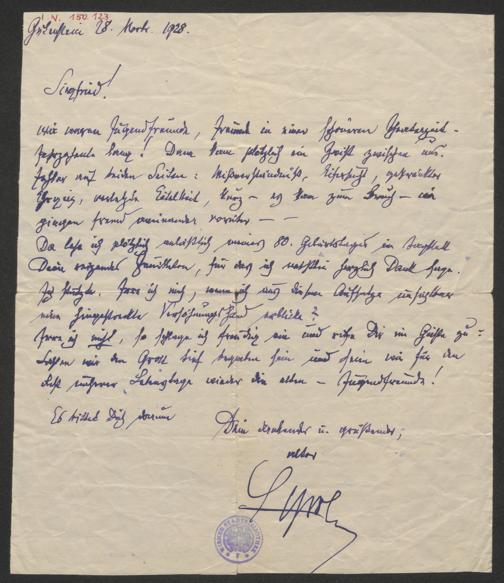 I. N. 150.123
Gutenstein 28. Novbr. 1928.
Siegfried!
Wir waren Jugendfreunde, Freunde in einer schöneren Theaterzeit -
Jahrzehnte lang! Dann kam plötzlich ein Zwist zwischen uns.
Fehler auf beiden Seiten: Mißverständniß, Eifersucht, gekränkter
Ehrgeiz, verletzte Eitelkeit, kurz - es kam zum Bruch - wir
giengen fremd aneinander vorüber - -
Da lese ich plötzlich anläßlich meines 80. Geburtstages im
Dein reizendes Feuilleton, für das ich natürlich herzlich Dank sage.
Ich stutzte. Irre ich nicht, wenn ich aus diesem Aufsatze
eine hingestreckte Versöhnungshand erblicke?
Irre ich nicht, so schlage ich freudig ein und rufe Dir im Geiste zu:
Lassen wir den Groll tief begraben sein und seien wir für den
Rest unserer Lebenstage wieder die alten - Jugendfreunde!
Es bittet Dich darum
Dein dankender u. grüßender,
alter